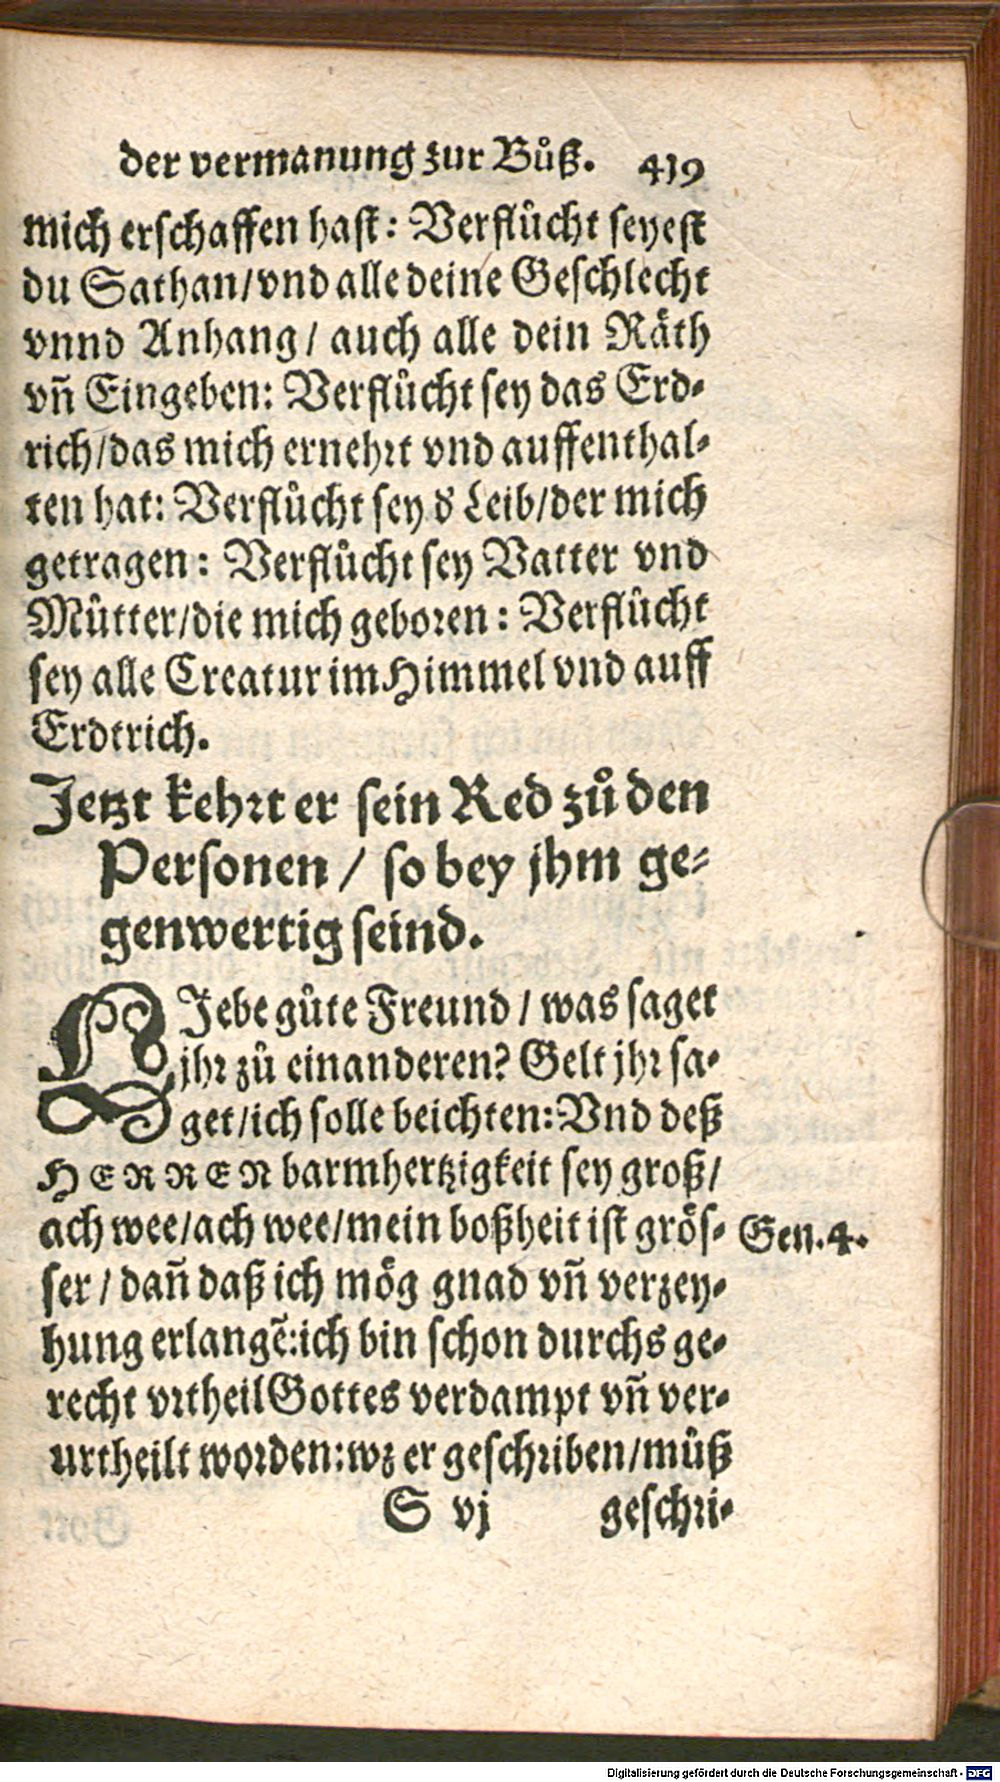 der vermanung zur Bůß. 419
mich erschaffen hast: Verflůcht seyest
du Sathan/vnd alle deine Geschlecht
vnnd Anhang/ auch alle dein Räth
vñ Eingeben: Verflůcht sey das Erd-
rich/das mich ernehrt vnd auffenthal-
ten hat: Verflůcht sey d' Leib/der mich
getragen: Verflůcht sey Vatter vnd
Můtter/die mich geboren: Verflůcht
sey alle Creatur im Himmel vnd auff
Erdtrich.
Jetzt kehrt er sein Red zů den
Personen / so bey jhm ge-
genwertig seind.
LJebe gůte Freund / was saget
jhr zů einanderen? Gelt jhr sa-
get/ich solle beichten: Vnd deß
HERREN barmhertzigkeit sey groß/
ach wee/ach wee/mein boßheit ist grös- Gen.4.
ser / dañ daß ich mög gnad vñ verzey-
hung erlangẽ: ich bin schon durchs ge-
recht vrtheil Gottes verdampt vñ ver-
urtheilt worden: wz er geschriben/můß
S vj geschri-
Digitalisierung gefördert durch die Deutsche Forschungsgemeinschaft - DFG